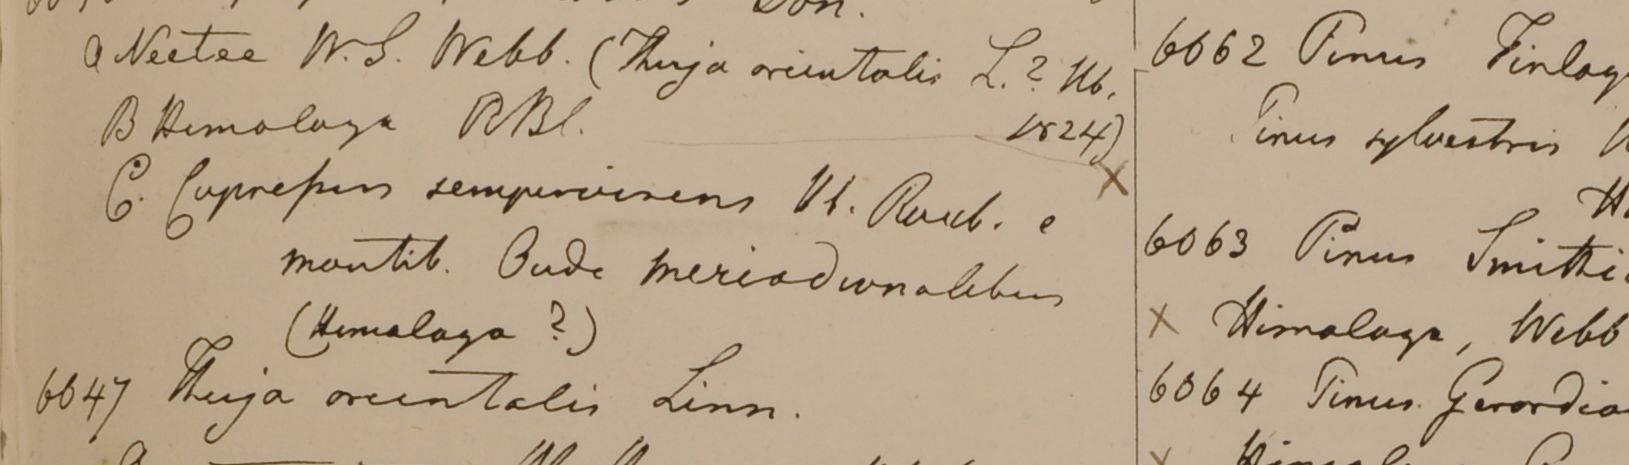 Don.
a Neetee W.S. Webb. (Thuja orientalis L.? Hb.
B Himalaya RBl. 1824)
C. Cupressus sempervirens Hb. Roxb. e
montib. Oude meriadionalibus
(Himalaya ?)
6047 Thuja orientalis Linn.
6062 Pinus Finlay
Pinus sylvestris
6063 Pinus Smithi
x Himalaya, Webb
6064 Pinus Gerardia